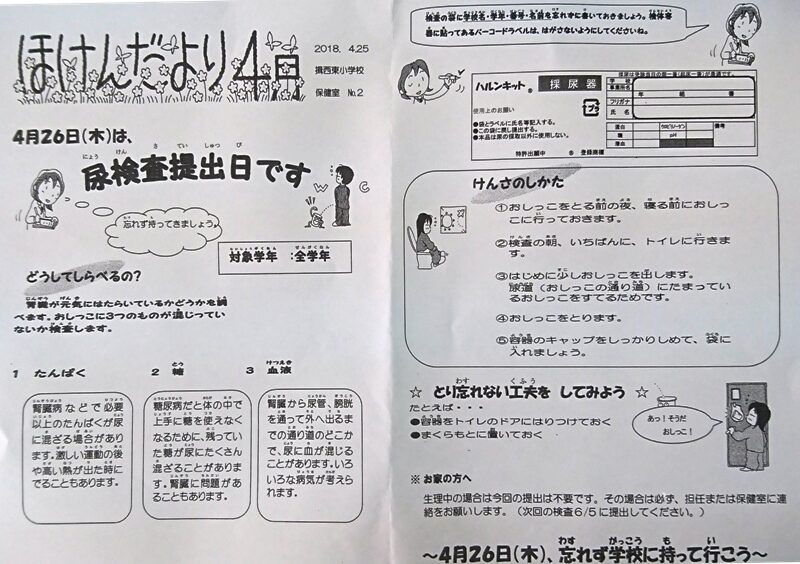 ほけんだより4月
2018. 4.25
揖西東小学校
保健室 No.2
4月26日(木)は、
尿検査提出日です
忘れず持ってきましょう。
対象学年 :全学年
どうしてしらべるの?
腎臓が元気にはたらいているかどうかを調
べます。おしっこに3つのものが混じってい
ないか検査します。
1 たんぱく
腎臓病などで必要
以上のたんぱくが尿
に混ざる場合があり
ます。激しい運動の後
や高い熱が出た時に
でることもあります。
2 糖
糖尿病だと体の中で
上手に糖を使えなく
なるために、残ってい
た糖が尿にたくさん
混ざることがありま
す。腎臓に問題があ
ることもあります。
3 血液
腎臓から尿管、膀胱
を通って外へ出るま
での通り道のどこか
で、尿に血が混じる
ことがあります。いろ
いろな病気が考えら
れます。
検査の袋に学校名・学年・番号・名前を忘れずに書いておきましょう。検体容
器に貼ってあるバーコードラベルは、はがさないようにしてくださいね。
ハルンキット® 採尿器
使用上のお願い
●袋とラベルに氏名等記入する。
●この袋に戻し提出する。
●本品は尿の採取以外に使用しない。
特許出願中 ® 登録商標
学校
事業所名
年 組 番
フリガナ
氏名
蛋白
ウロビリノーゲン
備考
糖
pH
潜血
けんさのしかた
①おしっこをとる前の夜、寝る前におしっ
こに行っておきます。
②検査の朝、いちばんに、トイレに行きま
す。
③はじめに少しおしっこを出します。
尿道(おしっこの通り道)にたまってい
るおしっこをすてるためです。
④おしっこをとります。
⑤容器のキャップをしっかりしめて、袋に
入れましょう。
☆ とり忘れない工夫を してみよう ☆
たとえば・・・
●容器をトイレのドアにはりつけておく
●まくらもとに置いておく
あっ!そうだ
おしっこ!
※ お家の方へ
生理中の場合は今回の提出は不要です。その場合は必ず、担任または保健室に連
絡をお願いします。(次回の検査6/5に提出してください。)
～4月26日(木)、忘れず学校に持って行こう～